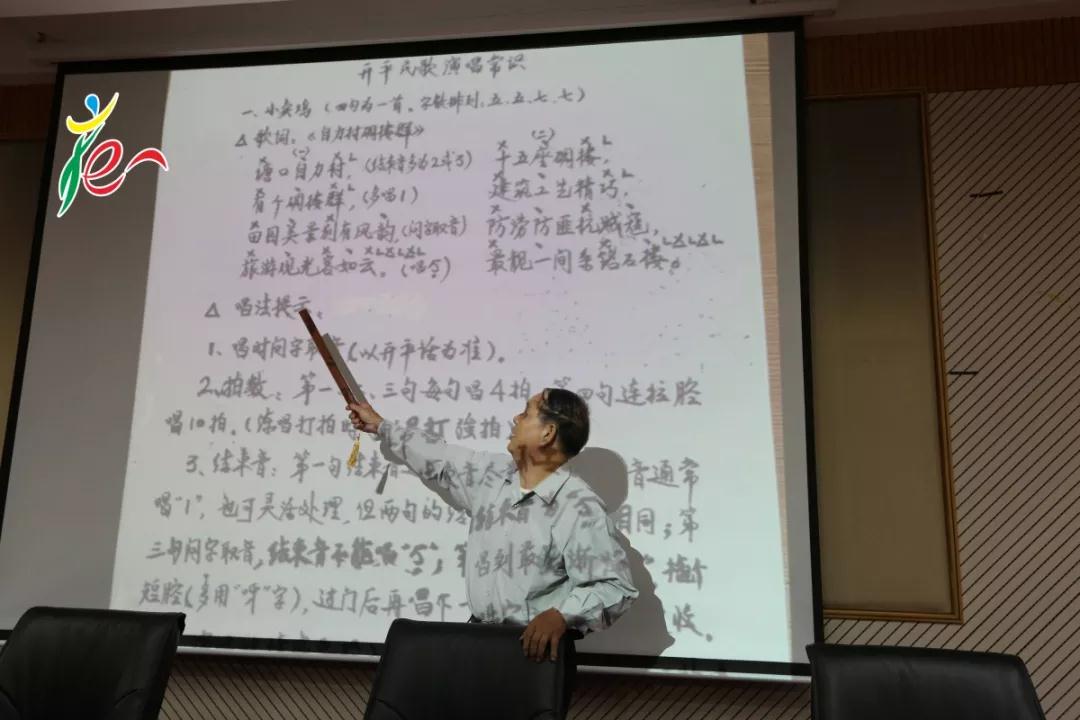 开平民歌演唱常识
一、小卖鸡（四句为一首。字数排列、五、五、七、七）
△ 歌词：《自力村碉楼群》
(一)
塘口自力村，(结束音多为2或3)
有个碉楼群，(多唱1)
田园美景别有风韵，(问字取音)
旅游观光喜如云。(唱5)
(二)
十五座碉楼，
建筑工艺精巧，
防涝防匪抗贼寇，
最靓一间系铭石楼。
△ 唱法提示。
1、唱时问字取音(以开平话为准)。
2、拍数：第一、三句每句唱4拍，第四句连拉腔
唱10拍。(练唱打拍时 打强拍
3、结束音：第一句结束音 音通常
唱“1”，也可灵活处理，但两句的结束音 相同；第
三句问字取音，结束音不能唱“5”； 唱到最 渐 拖个
短腔(多用“呀”字)，过门后再唱 收。